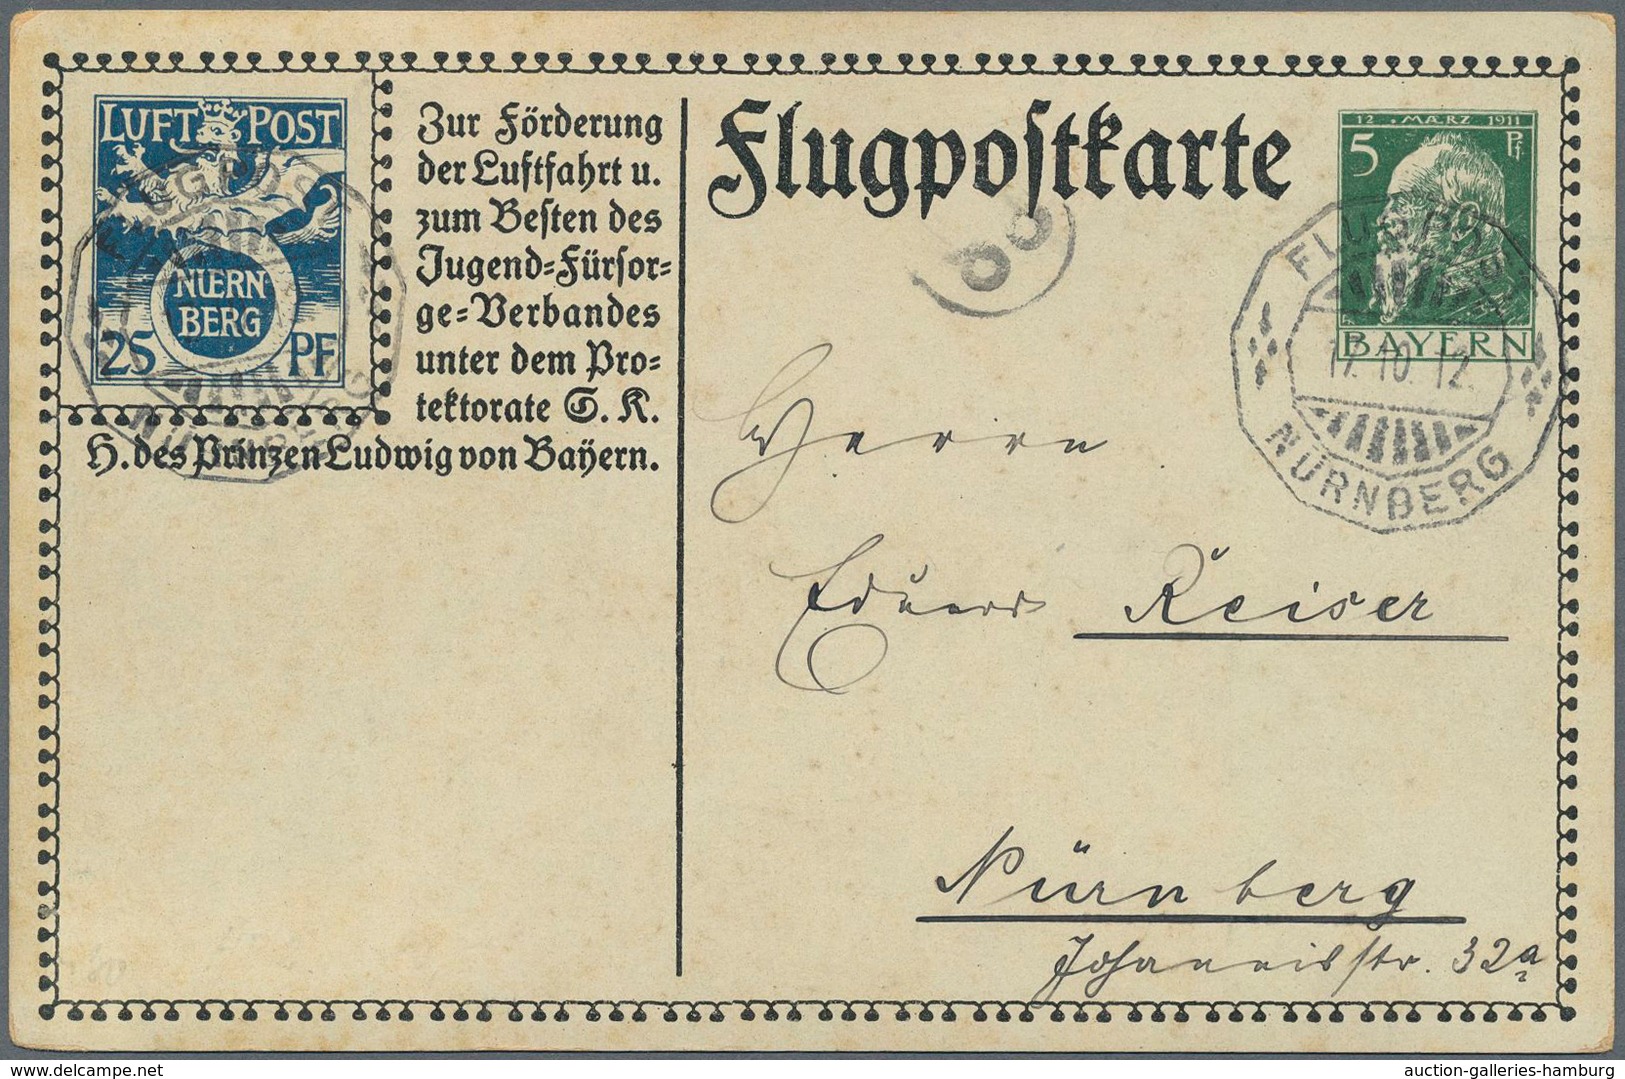 LUFT POST
NUERN
BERG
25 PF
Zur Förderung
der Luftfahrt u.
zum Besten des
Jugend=Fürsor=
ge=Verbandes
unter dem Pro=
tektorate S. K.
H. des Prinzen Ludwig von Bayern.
Flugpostkarte
12. MÆRZ 1911
5 Pf.
BAYERN
10. 12.
NÜRNBERG
Herrn
Eduard Reiser
Nürnberg
Johannisstr. 32a
auction-galleries-hamburg